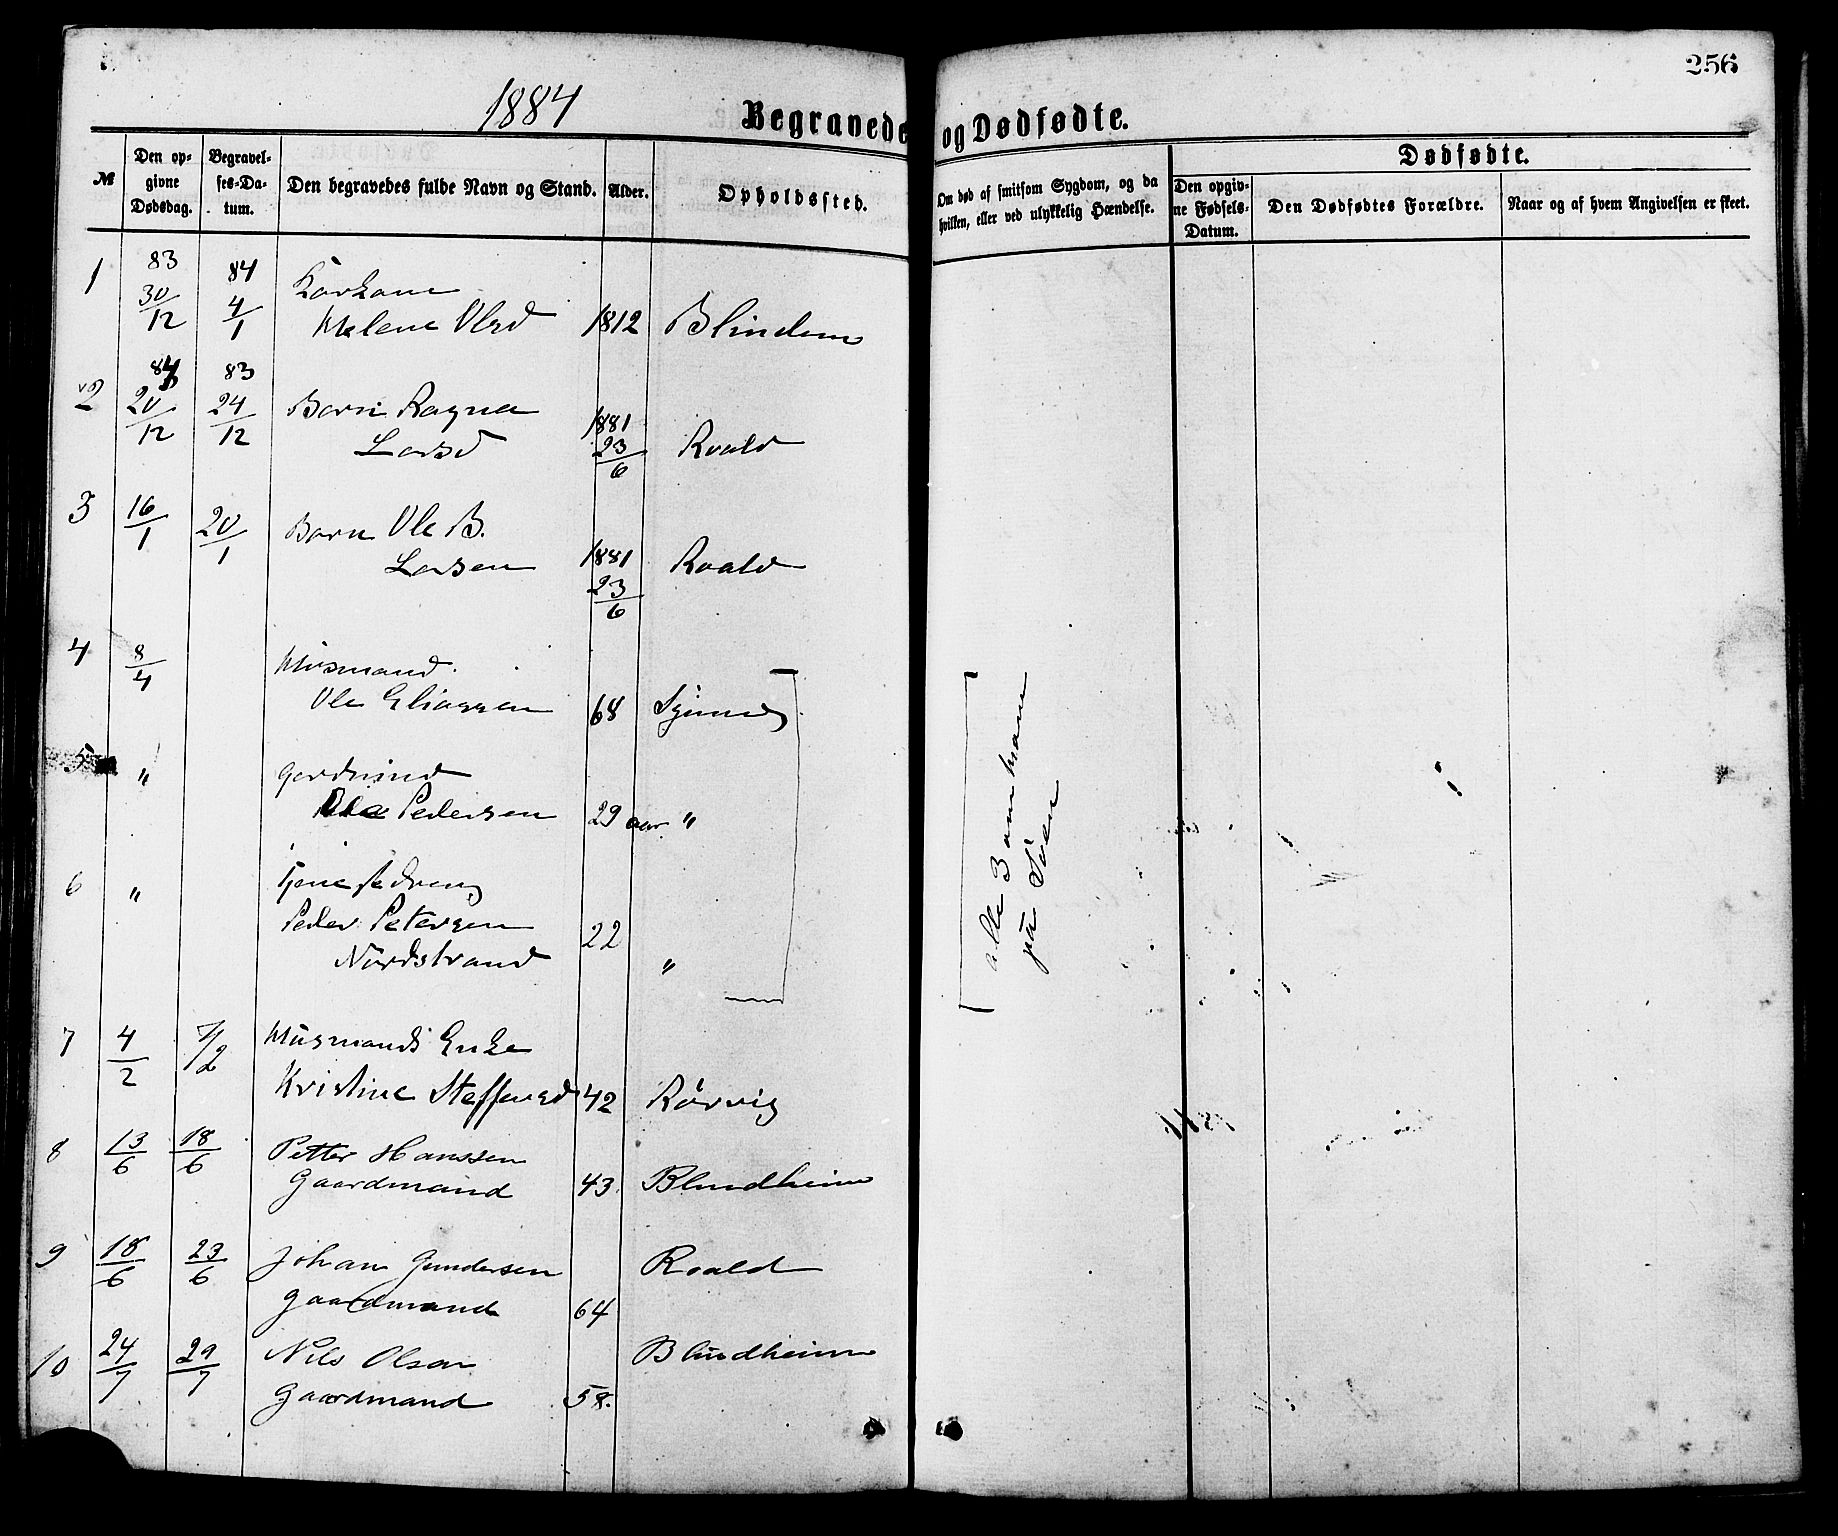 256
1884
Begravede og Dødfødte.
№
Den opgivne Dødsdag.
Begravelses-Datum.
Den begravedes fulde Navn og Stand.
Alder.
Opholdssted.
Om død af smitsom Sygdom, og da hvilken, eller ved ulykkelig Hændelse.
Dødfødte.
Den opgivne Fødsels-Datum.
Den Dødfødtes Forældre.
Naar og af hvem Angivelsen er skeet.
1 83 30/12 84 4/1 Kårkone
Helene Olsd 1812 Blindem
2 20/12 83 24/12 Barn Ragna
Larsd 1881 23/6 Roald
3 16/1 20/1 Barn Ole B.
Larsen 1881 23/6 Roald
4 8/4 Husmand
Ole Eliassen 68
5 "
Pedersen 29 aar "
6 "
Peder Petersen 22
Nordstrand "
alle 3 omkom
på Söen
7 4/2 7/2 Husmands Enke
Kristine Steffensd 42 Rörvig
8 13/6 18/6 Petter Hanssen
Gaardmand 43 Blindheim
9 18/6 23/6 Johan Gundersen Roald
Gaardmand 64
10 24/7 29/7 Nils Olsen Blindheim
Gaardmand 58.